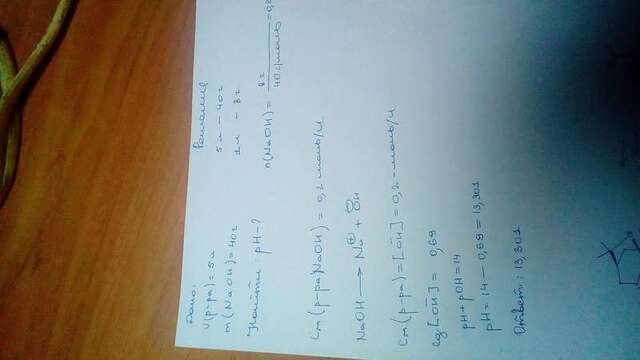 Дано:
V(р-ра) = 5л
m(NaOH) = 40г
Найти: pH-?
Решение
5л - 40г
1л - 8г
n(NaOH) = 8г / 40г/моль = 0,2
Cм(р-ра NaOH) = 0,2 моль/л
NaOH → Na⊕ + ⊖OH
Cм(р-ра) = [OH] = 0,2 моль/л
lg[OH] = 0,69
pH + pOH = 14
pH = 14 - 0,69 = 13,301
Ответ: 13,301